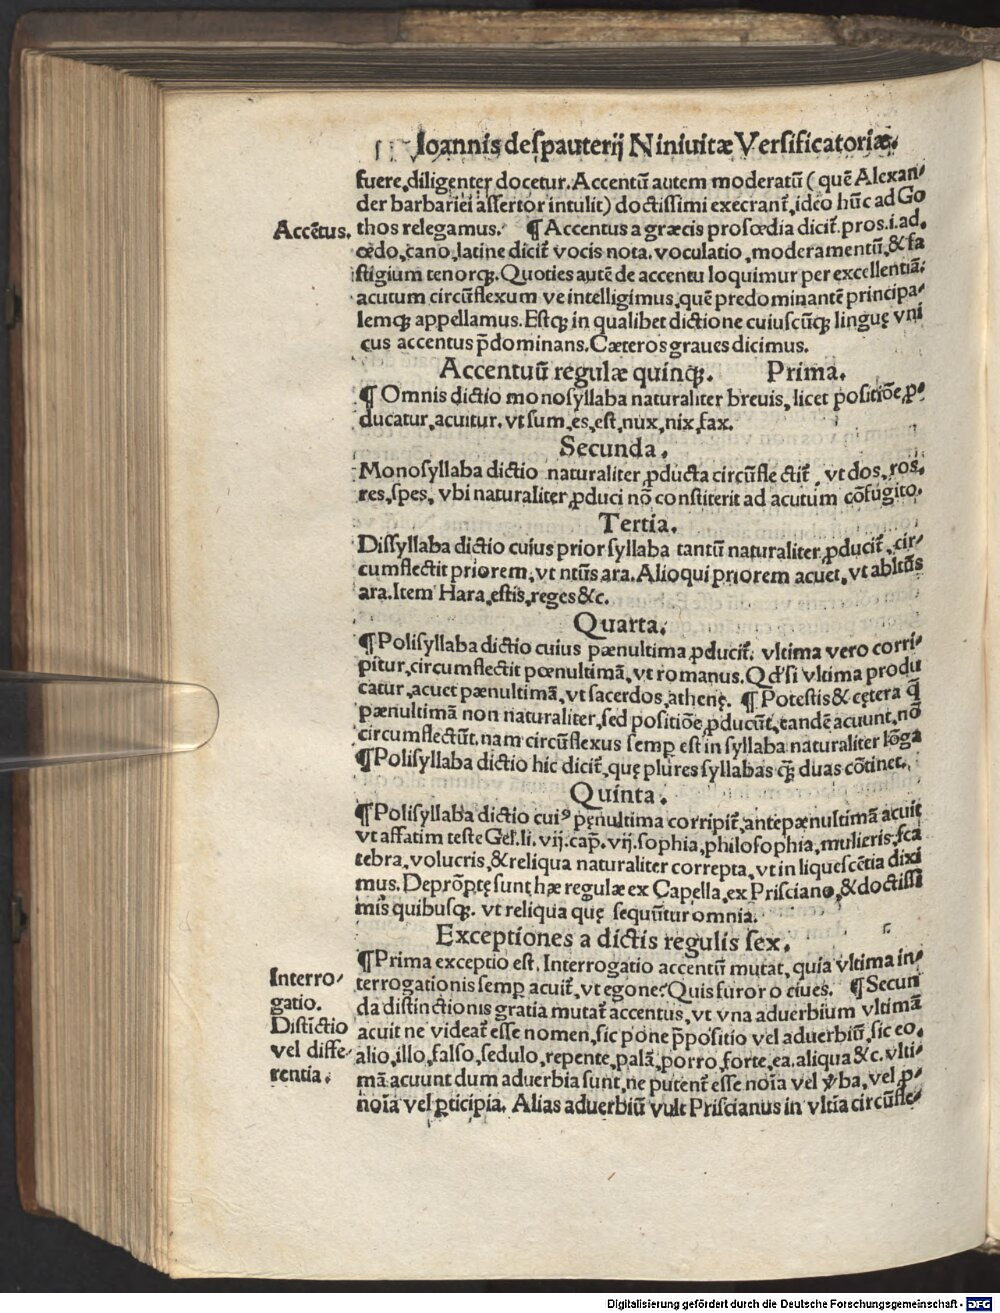 Ioannis despauterij Niniuitæ Versificatoriæ.
fuere, diligenter docetur. Accentū autem moderatū (quē Alexan⸗
der barbariei assertor intulit) doctissimi execrant᷑, ideo hūc ad Go
Accētus.
thos relegamus. ¶ Accentus a græcis prosœdia dicit᷑. pros .i. ad.
œdo, cano, latine dicit᷑ vocis nota. voculatio, moderamentū, & fa
stigium tenorqꝫ. Quoties autē de accentu loquimur per excellentiā:
acutum circūflexum ve intelligimus, quē predominantē principa⸗
lemqꝫ appellamus. Estqꝫ in qualibet dictione cuiuscūqꝫ linguę vni
cus accentus p̄dominans. Cæteros graues dicimus.
Accentuū regulæ quinqꝫ. Prima.
¶ Omnis dictio monosyllaba naturaliter breuis, licet positiōe, ꝓ⸗
ducatur, acuitur. vt sum, es, est, nux, nix, fax.
Secunda.
Monosyllaba dictio naturaliter ꝓducta circūflectit᷑, vt dos, ros.
res, spes, vbi naturaliter ꝓduci nō constiterit ad acutum cōfugito.
Tertia.
Dissyllaba dictio cuius prior syllaba tantū naturaliter ꝓducit᷑, cir⸗
cumflectit priorem, vt ntūs ara. Alioqui priorem acuet, vt abltūs
ara. Item Hara, estis, reges &c.
Quarta.
¶ Polisyllaba dictio cuius pænultima ꝓducit᷑, vltima vero corri⸗
pitur, circumflectit pœnultimā, vt romanus. Qd' si vltima produ
catur, acuet pænultimā, vt sacerdos, athenę. ¶ Potestis & cętera q̄
pænultimā non naturaliter, sed positiōe ꝓducūt, tandē acuunt, nō
circumflectūt. nam circūflexus semꝑ est in syllaba naturaliter lōga
¶ Polisyllaba dictio hic dicit᷑, quę plures syllabas q̄ꝫ duas cōtinet.
Quinta.
¶ Polisyllaba dictio cuiꝰ pęnultima corripit᷑, antepænultimā acuit
vt affatim teste Gel. li. vij. cap. vij. sophia, philosophia, mulieris, sca
tebra, volucris, & reliqua naturaliter correpta, vt in liquescētia dixi
mus. Deprōptę sunt hæ regulæ ex Capella, ex Prisciano, & doctissi
mis quibusqꝫ. vt reliqua quę sequūtur omnia.
Exceptiones a dictis regulis sex.
¶ Prima exceptio est. Interrogatio accentū mutat, quia vltima in⸗
Interro⸗
gatio.
terrogationis semꝑ acuit᷑, vt egone? Quis furor o ciues. ¶ Secun
da distinctionis gratia mutat᷑ accentus, vt vna aduerbium vltimā
Distīctio
vel diffe⸗
rentia.
acuit ne videat᷑ esse nomen, sic pone p̄positio vel aduerbiū, sic eo.
alio, illo, falso, sedulo, repente, palā, porro, forte, ea. aliqua &c. vlti⸗
mā acuunt dum aduerbia sunt, ne putent᷑ esse noīa vel v̄ba, vel ꝓ⸗
noīa vel ꝑticipia. Alias aduerbiū vult Priscianus in vltīa circūfle⸗
Digitalisierung gefördert durch die Deutsche Forschungsgemeinschaft - DFG